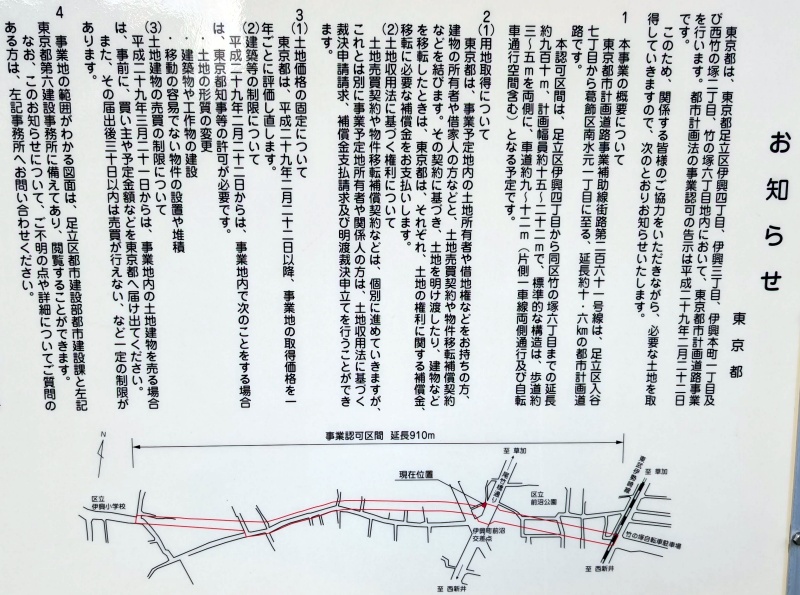 お知らせ
東京都
東京都は、東京都足立区伊興四丁目、伊興三丁目、伊興本町一丁目及
び西竹の塚二丁目、竹の塚六丁目地内において、東京都市計画道路事業
を行います。都市計画法の事業認可の告示は平成二十九年二月二十二日
です。
このため、関係する皆様のご協力をいただきながら、必要な土地を取
得していきますので、次のとおりお知らせいたします。
1 本事業の概要について
東京都市計画道路事業補助線街路第二百六十一号線は、足立区入谷
七丁目から葛飾区南水元一丁目に至る、延長約十・六kmの都市計画道
路です。
本認可区間は、足立区伊興四丁目から同区竹の塚六丁目までの延長
約九百十m、計画幅員約十五～二十二mで、標準的な構造は、歩道約
三～五mを両側に、車道約九～十二m(片側一車線両側通行及び自転
車通行空間含む)となる予定です。
2
(1)用地取得について
東京都は、事業予定地内の土地所有者や借地権などをお持ちの方、
建物の所有者や借家人の方などと、土地売買契約や物件移転補償契約
などを結びます。その契約に基づき、土地を明け渡したり、建物など
を移転したときは、東京都は、それぞれ、土地の権利に関する補償金、
移転に必要な補償金をお支払いします。
(2)土地収用法に基づく権利について
土地売買契約や物件移転補償契約などは、個別に進めていきますが、
これとは別に事業予定地所有者や関係人の方は、土地収用法に基づく
裁決申請請求、補償金支払請求及び明渡裁決申立てを行うことができ
ます。
3
(1)土地価格の固定について
東京都は、平成二十九年二月二十二日以降、事業地の取得価格を一
年ごとに評価し直します。
(2)建築等の制限について
平成二十九年二月二十二日からは、事業地内で次のことをする場合
は、東京都知事等の許可が必要です。
・土地の形質の変更
・建築物や工作物の建設
・移動の容易でない物件の設置や堆積
(3)土地建物の売買の制限について
平成二十九年三月二十一日からは、事業地内の土地建物を売る場合
は、事前に、買い主や予定金額などを東京都へ届け出てください。
また、その届出後三十日以内は売買が行えない、など一定の制限が
あります。
4 事業地の範囲がわかる図面は、足立区都市建設部都市建設課と左記
東京都第六建設事務所に備えてあり、閲覧することができます。
なお、このお知らせについて、ご不明の点や詳細についてご質問の
ある方は、左記事務所へお問い合わせください。
事業認可区間 延長910m
N
区立
伊興小学校
現在位置
至 草加
尾竹橋通り
区立
前沼公園
東武伊勢崎線
至 草加
伊興町前沼
交差点
竹の塚自転車駐車場
至 西新井
至 西新井